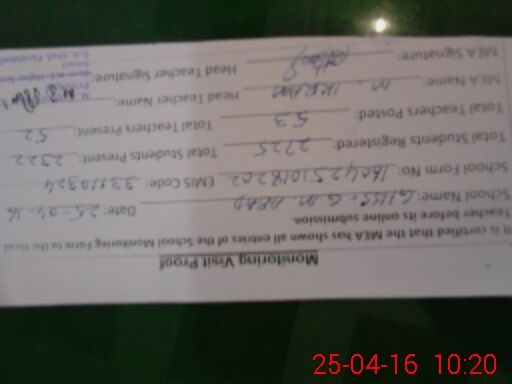 Monitoring Visit Proof
It is certified that the MEA has shown all entries of the School Monitoring Form to the Head
Teacher before its online submission.
School Name: GHSS G.M ABAD Date: 25-04-16
School Form No: EMIS Code: 33110324
Total Students Registered: 2725 Total Students Present: 2322
Total Teachers Posted: 53 Total Teachers Present: 52
MEA Name: M. IKRAM Head Teacher Name:
MEA Signature: Head Teacher Signature:
25-04-16 10:20